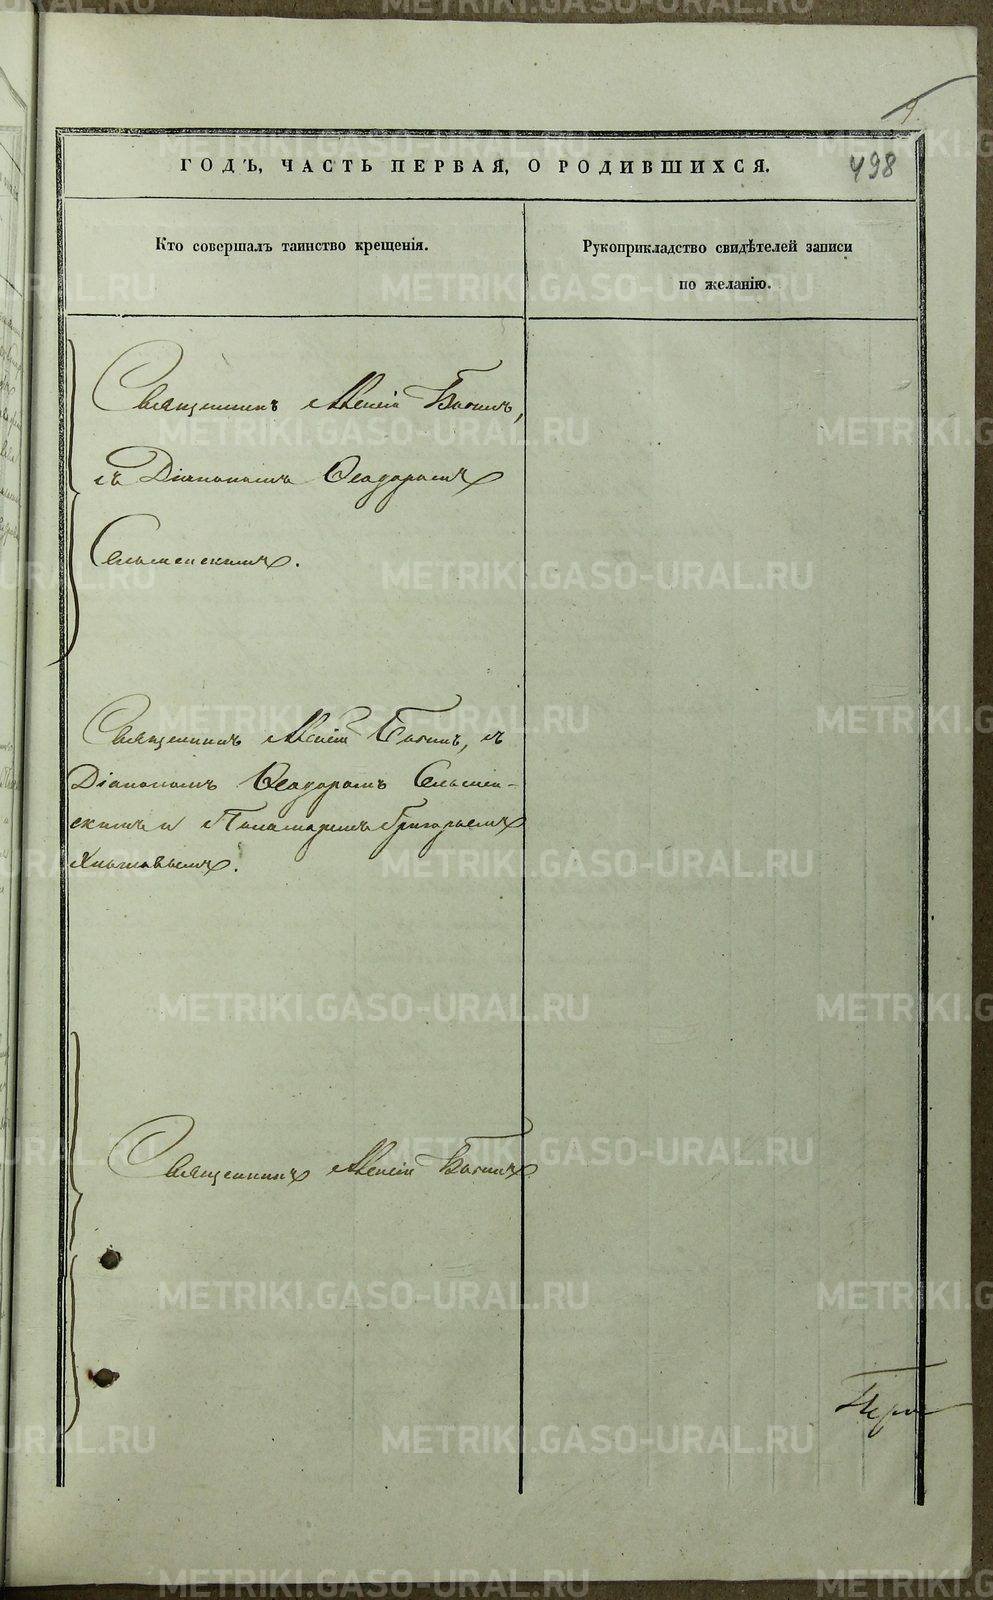 4.
498
ГОДЪ, ЧАСТЬ ПЕРВАЯ, О РОДИВШИХСЯ.
Кто совершалъ таинство крещенія.
Рукоприкладство свидѣтелей записи
по желанію.
Священникъ Алексій
съ Діакономъ Ѳеодоромъ
Сельменскимъ.
Священникъ Алексій съ
Діакономъ Ѳеодоромъ Сельмен-
скимъ и Пономаремъ Григорьемъ
Священникъ Алексій
METRIKI.GASO-URAL.RU